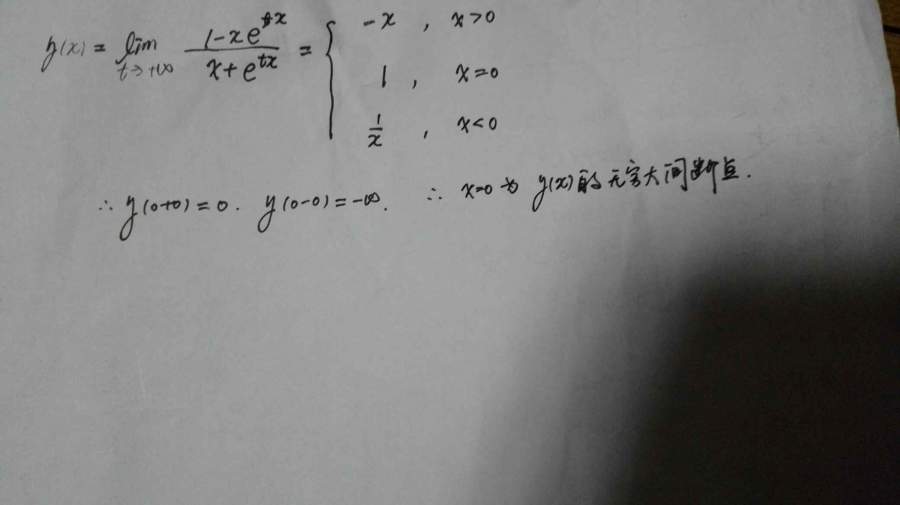 y(x) = lim t→+∞ (1-xe^{tx})/(x+e^{tx}) = { -x , x>0
1 , x=0
1/x , x<0
∴ y(0+0)=0. y(0-0)=-∞. ∴ x=0为 y(x)的无穷大间断点.